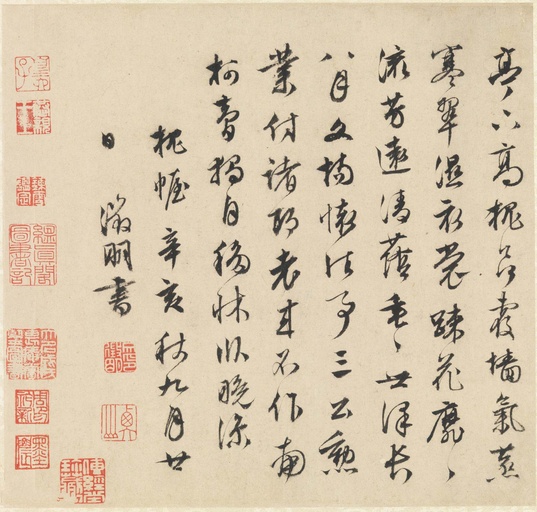 亭下高槐欲覆墻氣蒸
寒翠濕衣裳踈花靡〻
流芳遠清蔭垂〻世澤長
八月文場懷往事三公勲
業付諸郎老來不作南
柯夢獨自移牀臥晚涼
槐幄辛亥秋九月廿
日
徵明書